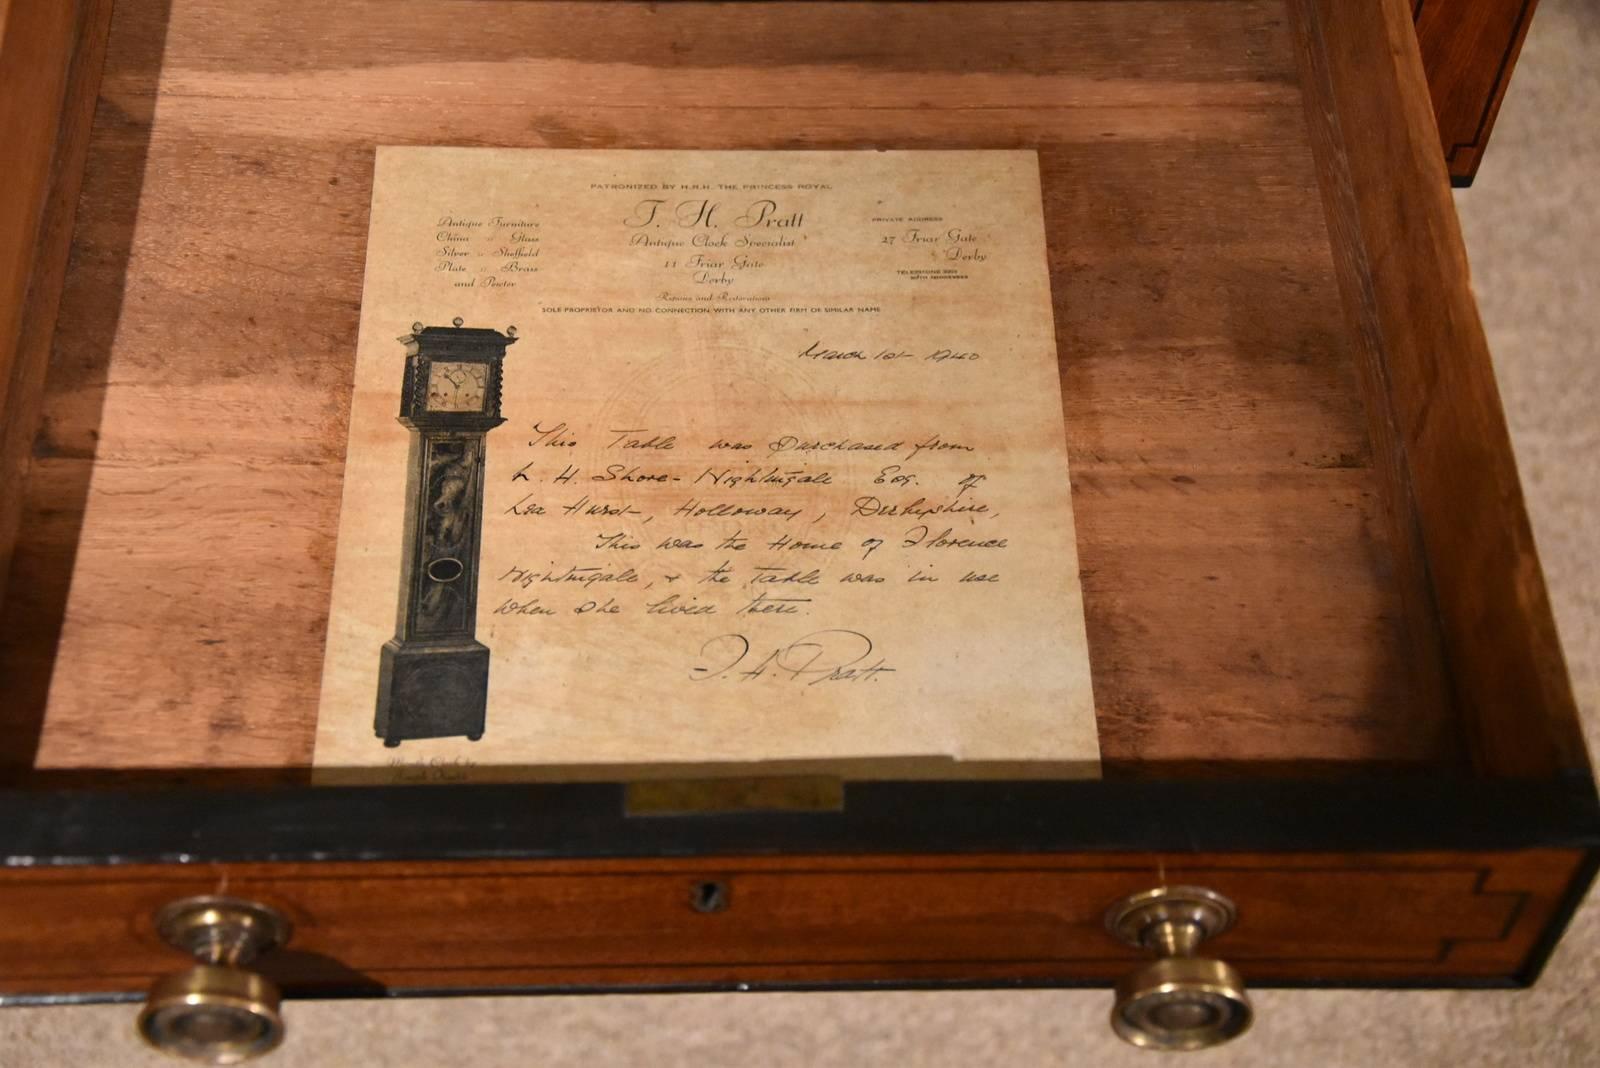 PATRONIZED BY H.R.H. THE PRINCESS ROYAL
T. H. Pratt
Antique Clock Specialist
11 Friar Gate
Derby
Repairs and Restorations
SOLE PROPRIETOR AND NO CONNECTION WITH ANY OTHER FIRM OF SIMILAR NAME
Antique Furniture
China " Glass
Silver " Sheffield
Plate " Brass
and Pewter
PRIVATE ADDRESS
27 Friar Gate
Derby
TELEPHONE
BOTH ADDRESSES
March 1st 1940
This Table was purchased from
L. H. Shore-Nightingale Esq. of
Lea Hurst, Holloway, Derbyshire,
This was the Home of Florence
Nightingale, & the Table was in use
when she lived there.
T. H. Pratt.